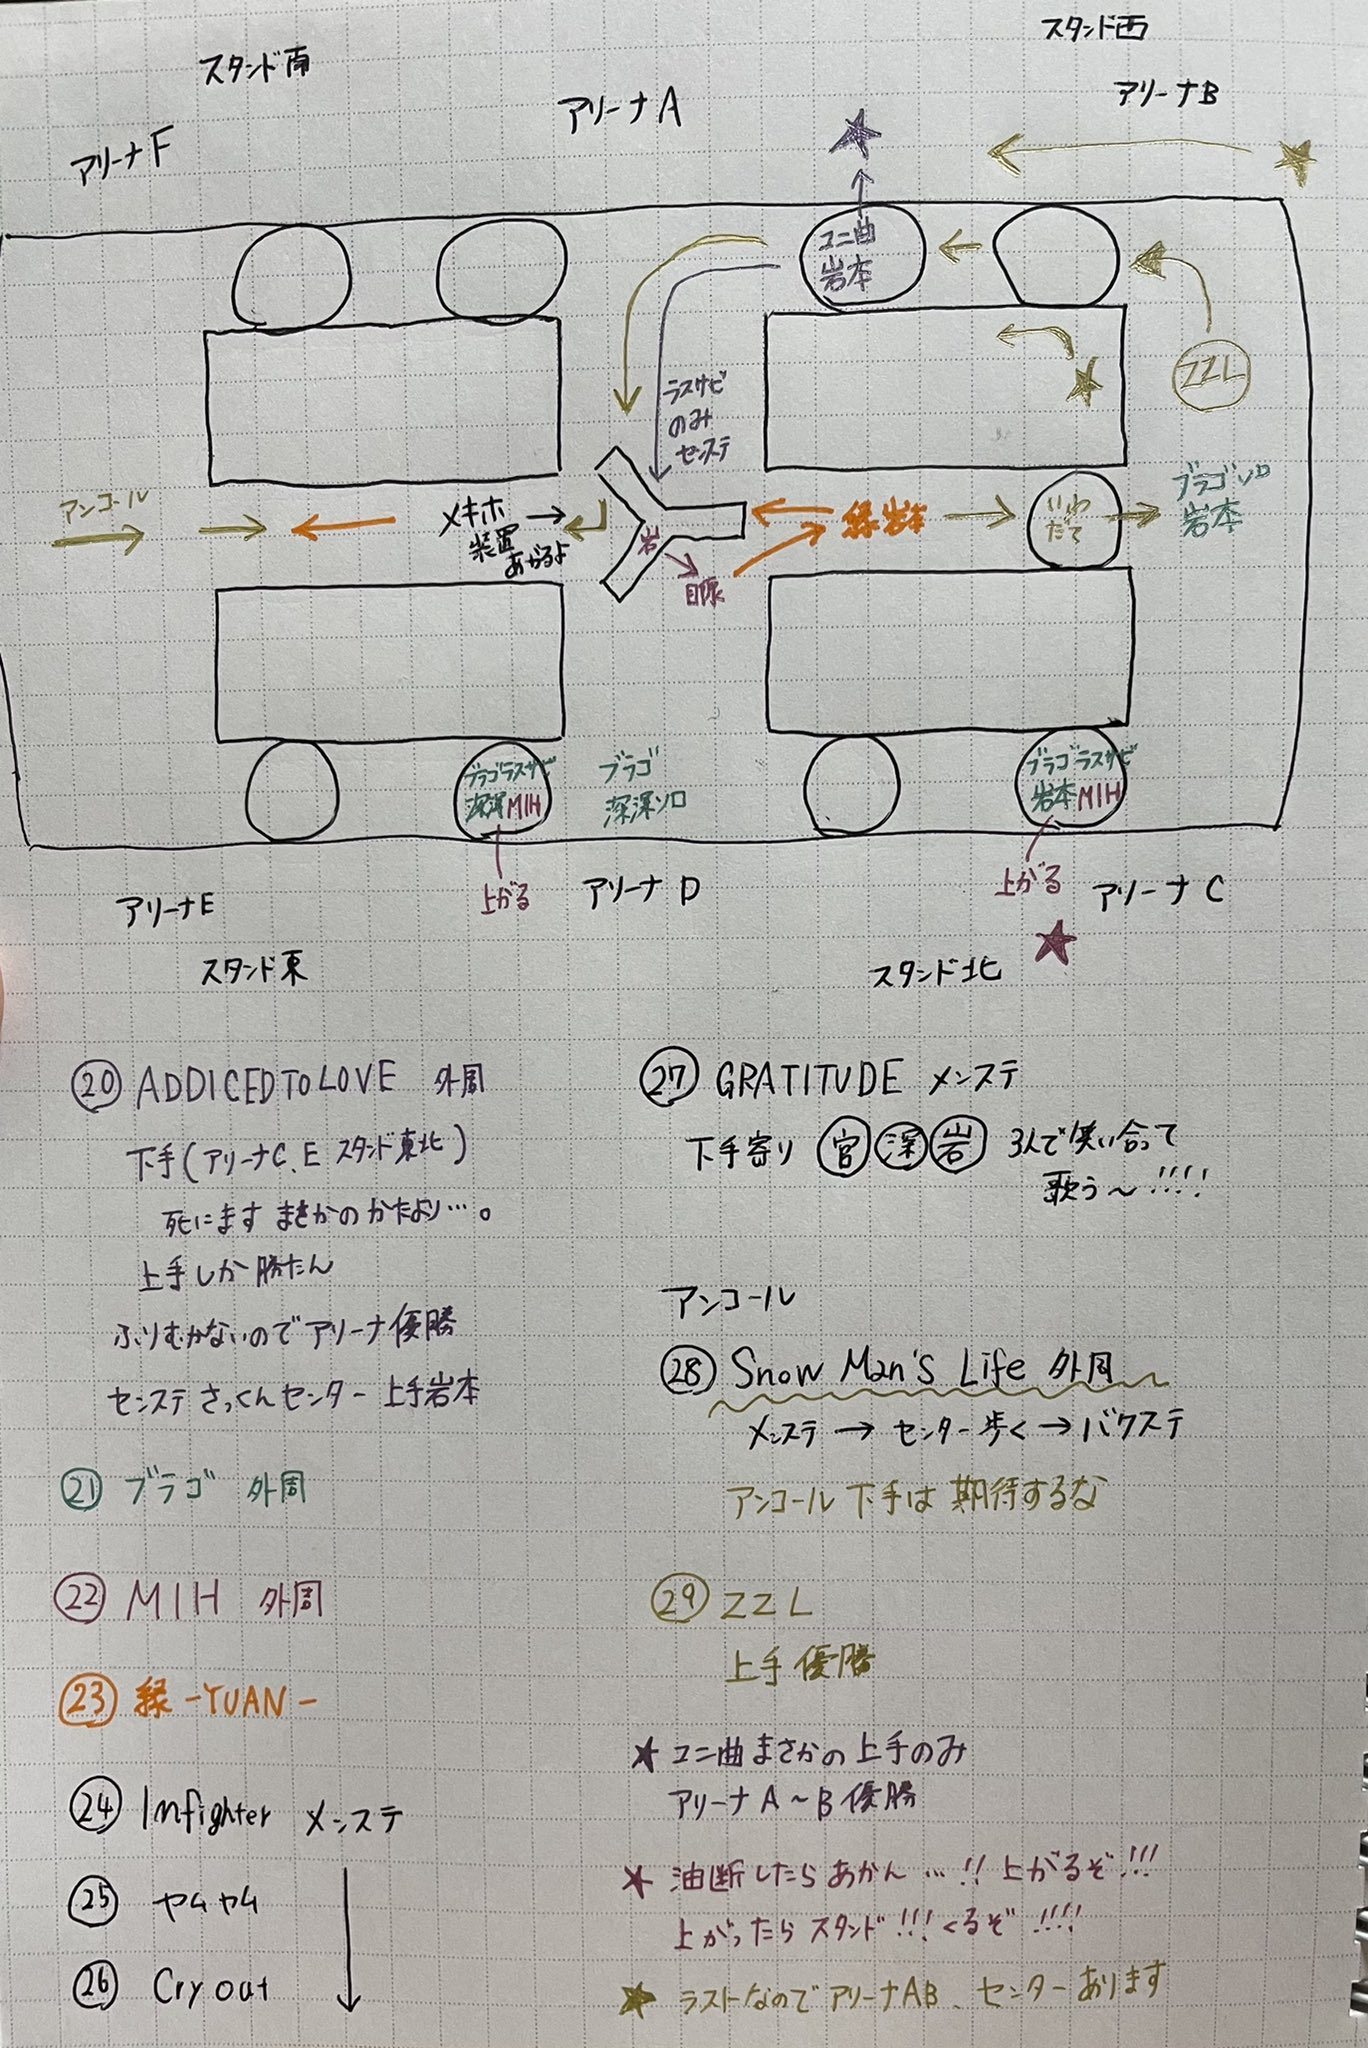 スタンド西
スタンド南
アリーナB
アリーナA
アリーナF
ユニ曲
岩本
ZZL
ラスサビ
のみ
センステ
アンコール
メキホ →
装置
あがるよ
岩
目黒
縁岩本
いわ
だて
ブラゴソロ
岩本
ブラゴラスサビ
深澤MIH
ブラゴ
深澤ソロ
ブラゴラスサビ
岩本MIH
上がる
上がる
アリーナE
アリーナD
アリーナC
スタンド東
スタンド北
⑳ ADDICEDTOLOVE 外周
下手(アリーナC.E スタンド東北)
死にます まさかのかたより…。
上手しか勝たん
ふりむかないのでアリーナ優勝
センステ さっくんセンター 上手岩本
㉑ ブラゴ 外周
㉒ MIH 外周
㉓ 縁 -YUAN-
㉔ Infighter メンステ
㉕ ヤムヤム
㉖ Cry out
㉗ GRATITUDE メンステ
下手寄り 宮 深 岩 3人で笑い合って
歌う〜!!!!
アンコール
㉘ Snow Man's Life 外周
メンステ → センター歩く → バクステ
アンコール 下手は期待するな
㉙ ZZL
上手優勝
★ ユニ曲まさかの上手のみ
アリーナA〜B優勝
★ 油断したらあかん…!! 上がるぞ!!!
上がったらスタンド!!!くるぞ!!!!
★ ラストなのでアリーナAB、センターあります